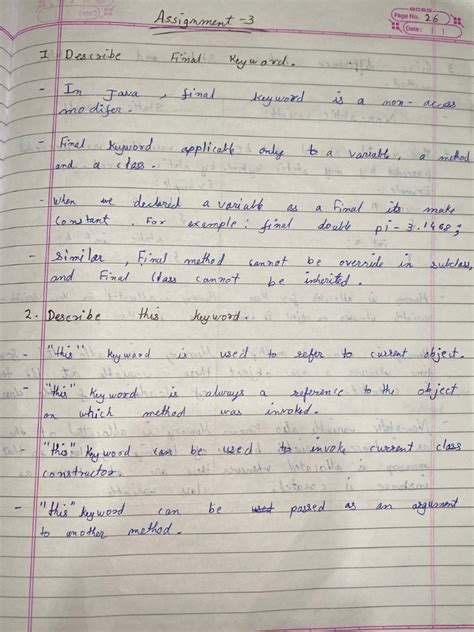 Assignment -3
Page No. 26
Date:
1 Describe Final Keyword.
- In Java, final keyword is a non-access
modifer.
- Final keyword applicable only to a variable, a method
and a class.
- When we declared a variable as a Final its make
constant. For example: final double pi - 3.1468;
- Similar, Final method cannot be override in subclass,
and Final class cannot be inherited.
2. Describe this keyword.
- "this" keyword is used to refer to current object.
- "this" keyword is always a reference to the object
on which method was invoked.
- "this" keyword can be used to invoke current class
constructor.
- "this" keyword can be used passed as an argument
to another method.